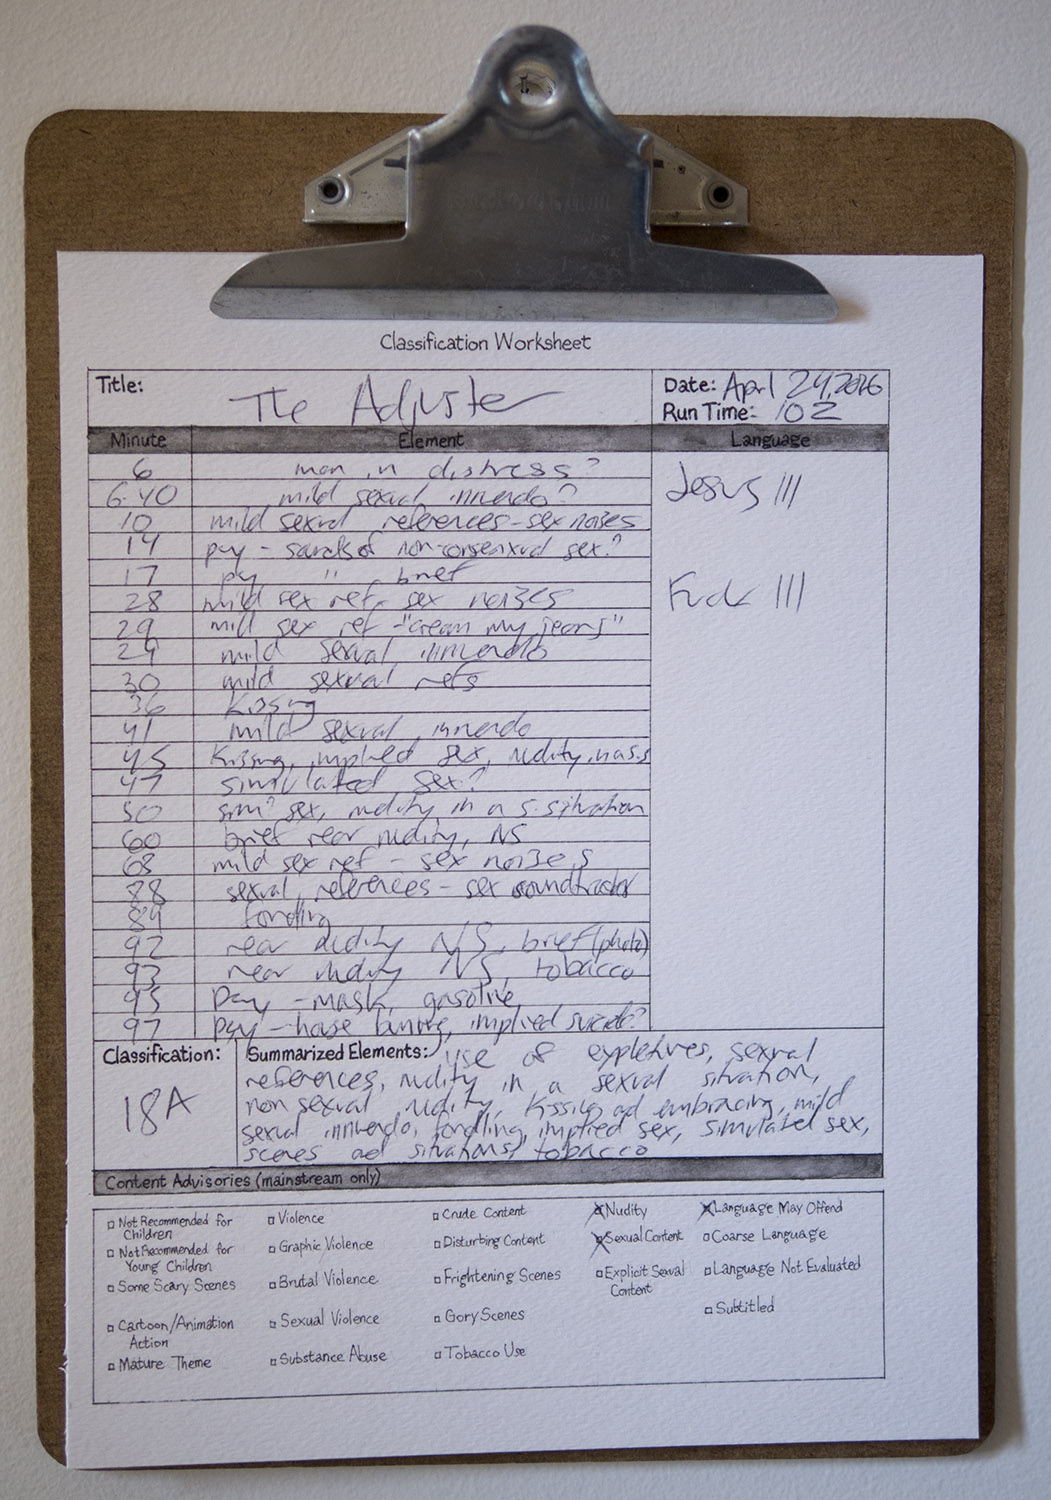 Classification Worksheet
Title: The Adjuster
Date: April 24, 2026
Run Time: 102
Minute Element Language
6 man in distress?
6:40 mild sexual innuendo?
Jesus |||
10 mild sexual references - sex noises
14 psy - sounds of non-consensual sex?
17 psy " brief
28 mild sex ref - sex noizes
Fuck |||
29 mild sex ref - "cream my jeans"
29 mild sexual innuendo
30 mild sexual refs
36 Kissing
41 mild sexual innuendo
45 Kissing, implied sex, nudity in a s.s
47 simulated sex?
50 sim? sex, nudity in a s. situation
60 brief rear nudity, NS
68 mild sex ref - sex noises
88 sexual references - sex soundtrack
89 fondling
92 rear nudity NS, brief (photo)
93 rear nudity NS, tobacco
95 psy - mask, gasoline
97 psy - house burning, implied suicide?
Classification: 18A
Summarized Elements: Use of expletives, sexual
references, nudity in a sexual situation,
non sexual nudity, Kissing and embracing, mild
sexual innuendo, fondling, implied sex, simulated sex,
scenes and situations, tobacco
Content Advisories (mainstream only)
Not Recommended for
Children
Not Recommended for
Young Children
Some Scary Scenes
Cartoon/Animation
Action
Mature Theme
Violence
Graphic Violence
Brutal Violence
Sexual Violence
Substance Abuse
Crude Content
Disturbing Content
Frightening Scenes
Gory Scenes
Tobacco Use
Nudity
Sexual Content
Explicit Sexual
Content
Language May Offend
Coarse Language
Language Not Evaluated
Subtitled